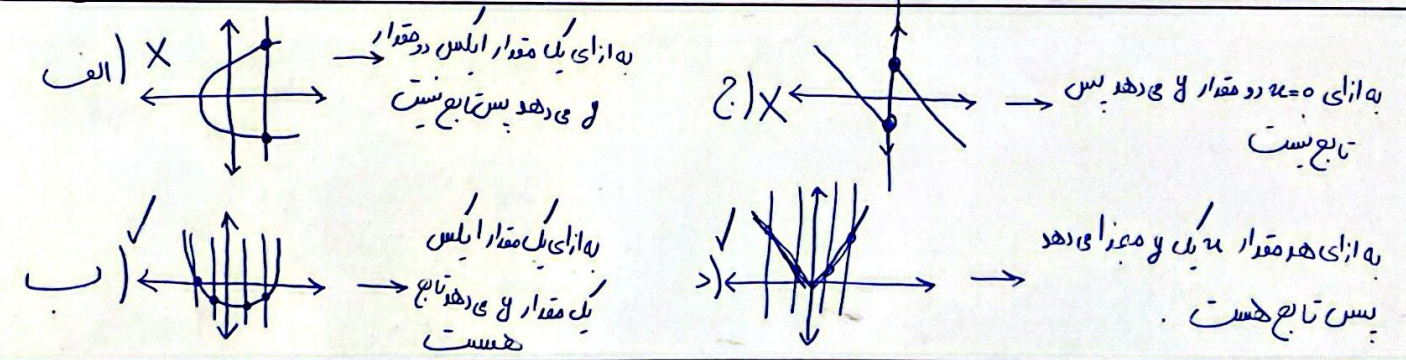 الف) X
به ازای یک مقدار ایکس دو مقدار
y می دهد پس تابع نیست
ج) X
به ازای x=0 دو مقدار y می دهد پس
تابع نیست
ب) ✓
به ازای یک مقدار ایکس
یک مقدار y می دهد تابع
هست
د) ✓
به ازای هر مقدار x یک y مجزا می دهد
پس تابع هست .